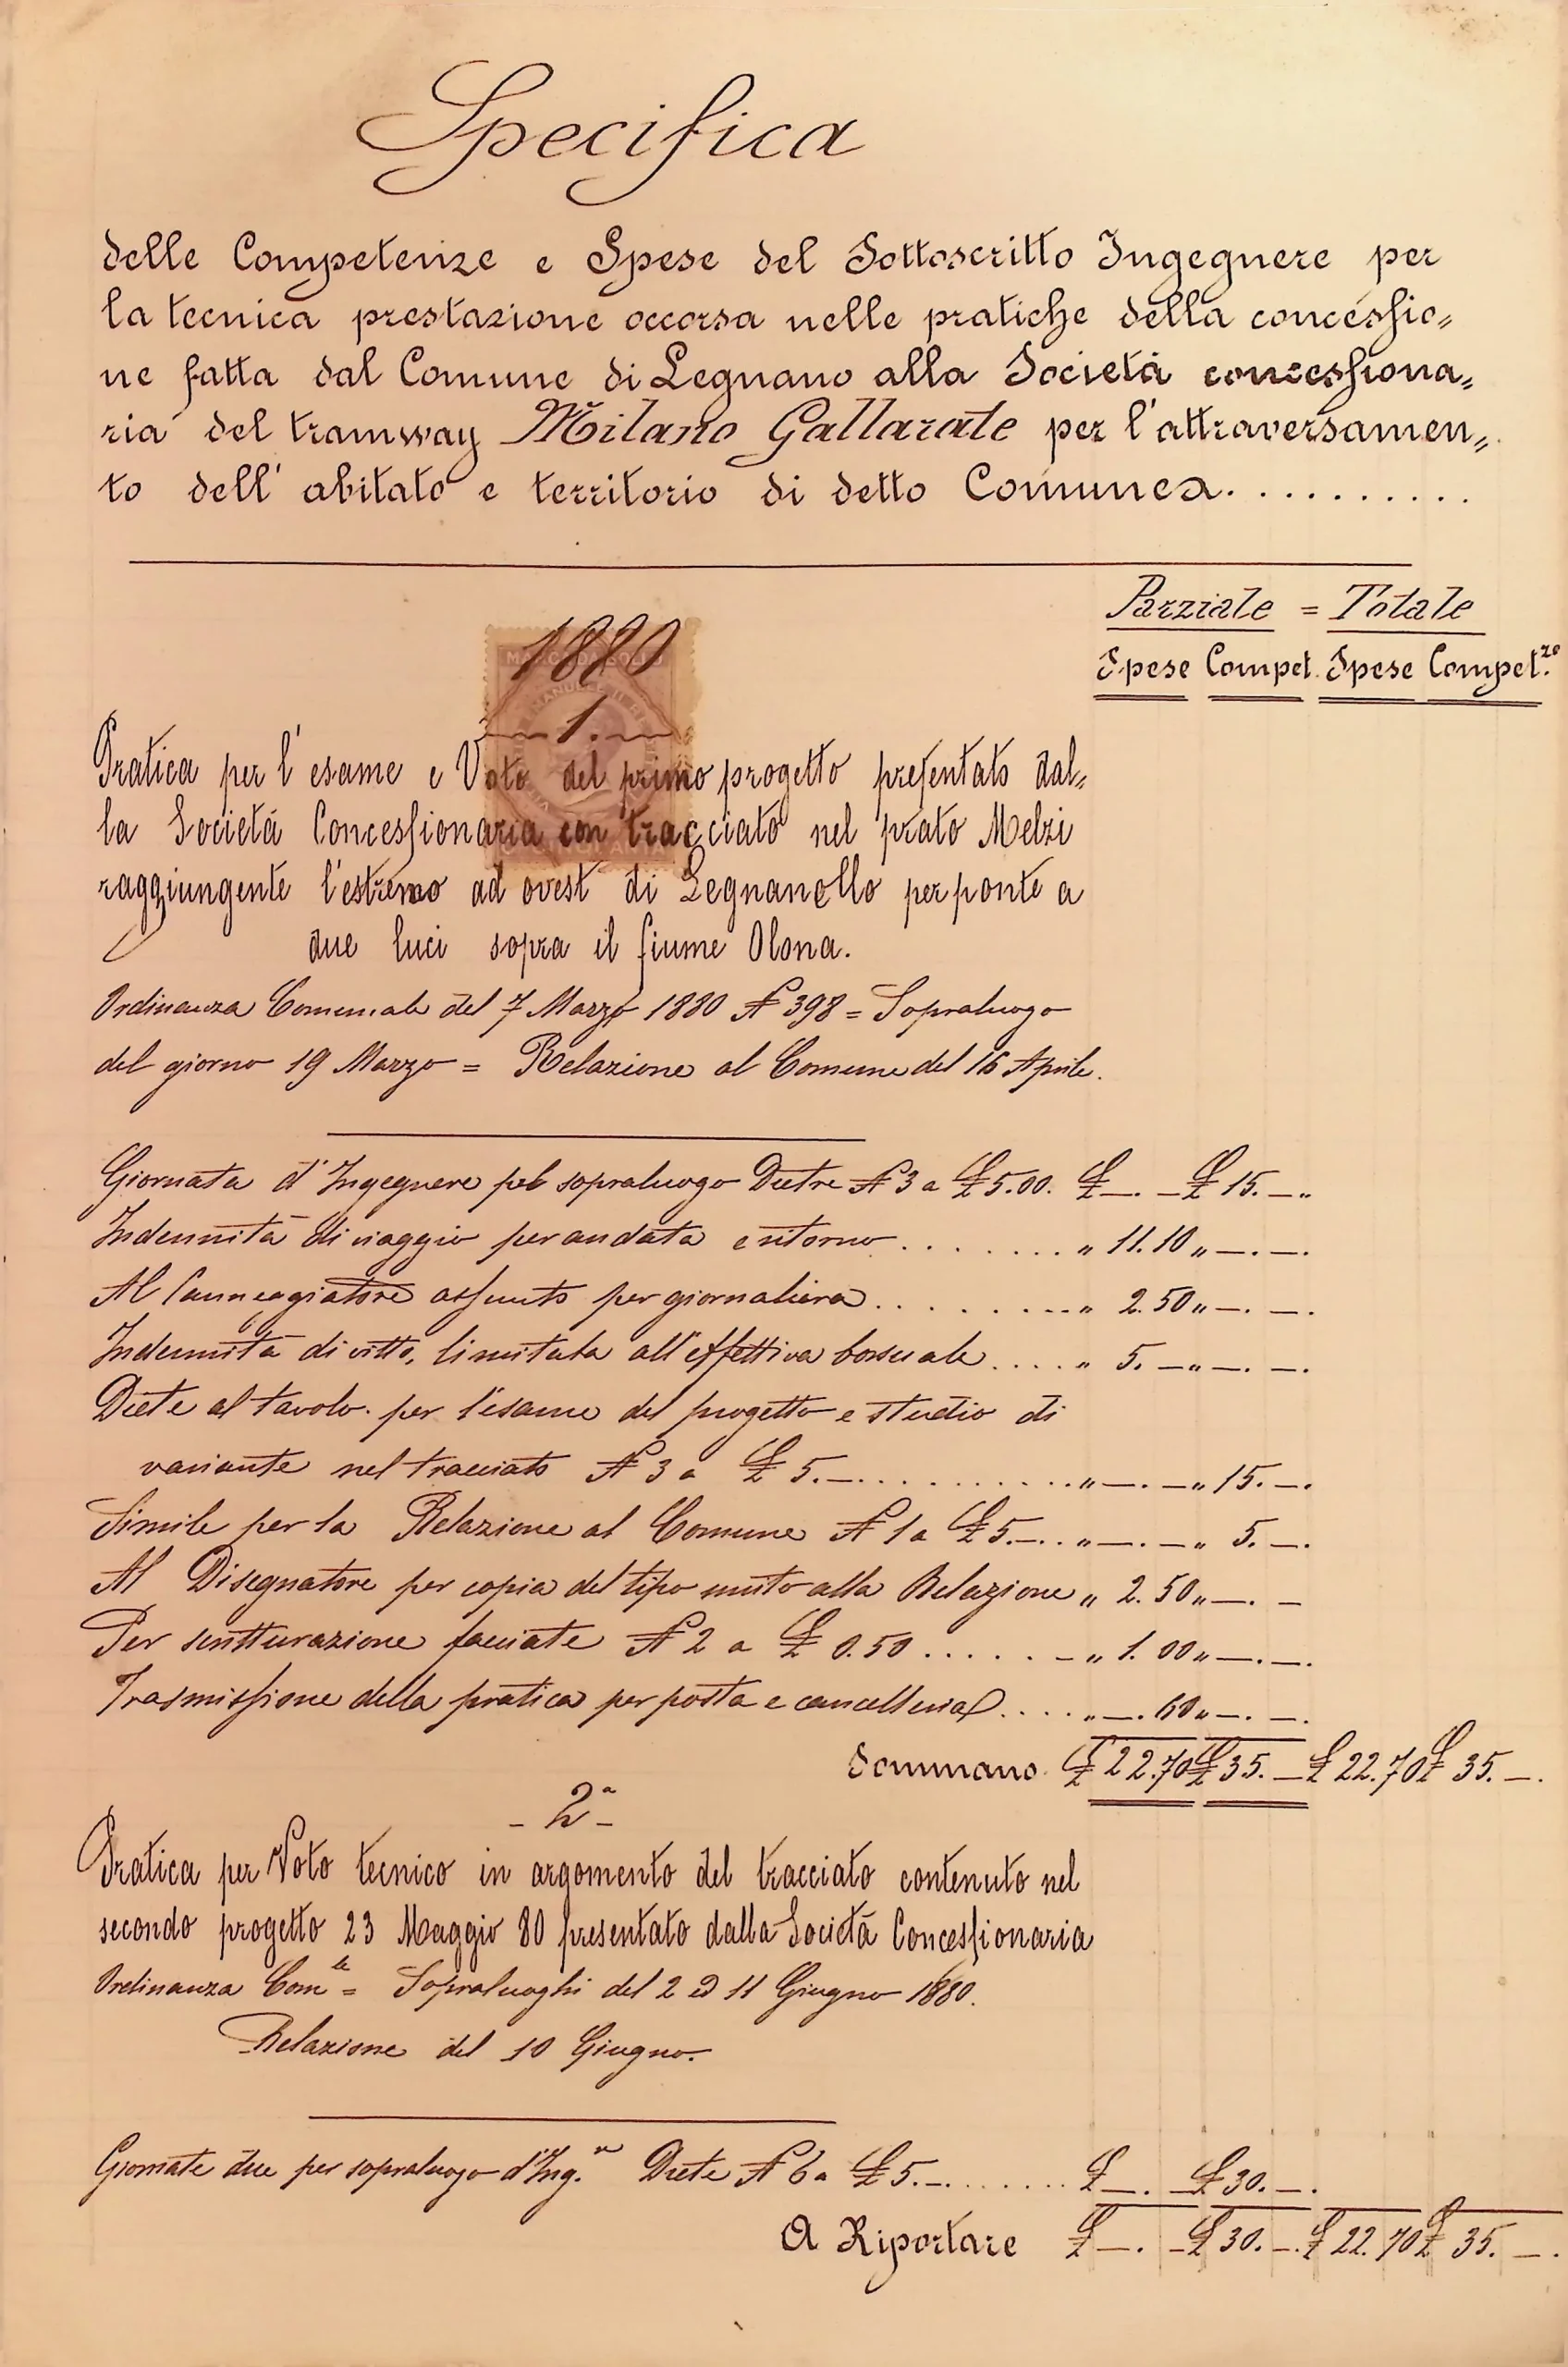 Specifica
delle Competenze e Spese del Sottoscritto Ingegnere per
la tecnica prestazione occorsa nelle pratiche della concessio=
ne fatta dal Comune di Legnano alla Società concessiona=
ria del tramway Milano Gallarate per l'attraversamen=
to dell' abitato e territorio di detto Comune. . . . . . . . . .
Parziale = Totale
Spese Compet. Spese Compet.ze
1880
MARCA DA BOLLO
1.
Pratica per l' esame e Voto del primo progetto presentato dal=
la Società Concessionaria con tracciato nel prato Melzi
raggiungente l'estremo ad ovest di Legnanello per ponte a
due luci sopra il fiume Olona.
Ordinanza Comunale del 7 Marzo 1880 N 398 = Sopraluogo
del giorno 19 Marzo = Relazione al Comune del 16 Aprile.
Giornata d'Ingegnere pel sopraluogo Diete N 3 a £ 5.00. £ —. — £ 15. —"
Indennità di viaggio per andata e ritorno . . . . . . . " 11. 10 " —. —.
Al Canneggiatore assunto per giornaliera . . . . . . . . " 2. 50 " —. —.
Indennità di vitto, limitata all'effettiva borsuale . . . . " 5. — " —. —.
Diete al tavolo per l'esame del progetto e studio di
variante nel tracciato N 3 a £ 5. — . . . . . . . . . " —. — " 15. —.
Simile per la Relazione al Comune N 1 a £ 5. — . . " —. — " 5. —.
Al Disegnatore per copia del tipo unito alla Relazione " 2. 50 " —. —
Per scritturazione facciate N 2 a £ 0. 50 . . . . . — " 1. 00 " —. —.
Trasmissione della pratica per posta e cancelleria . . . . " —. 60 " —. —.
Sommano £ 22. 70 £ 35. — £ 22. 70 £ 35. —.
- 2ª -
Pratica per Voto tecnico in argomento del tracciato contenuto nel
secondo progetto 23 Maggio 80 presentato dalla Società Concessionaria
Ordinanza Com.le = Sopraluoghi del 2 ed 11 Giugno 1880.
Relazione del 10 Giugno.
Giornate due per sopraluogo d'Ing.re Diete N 6 a £ 5. — . . . . . . . £ —. — £ 30. —.
A Riportare £ —. — £ 30. —. £ 22. 70 £ 35. —.